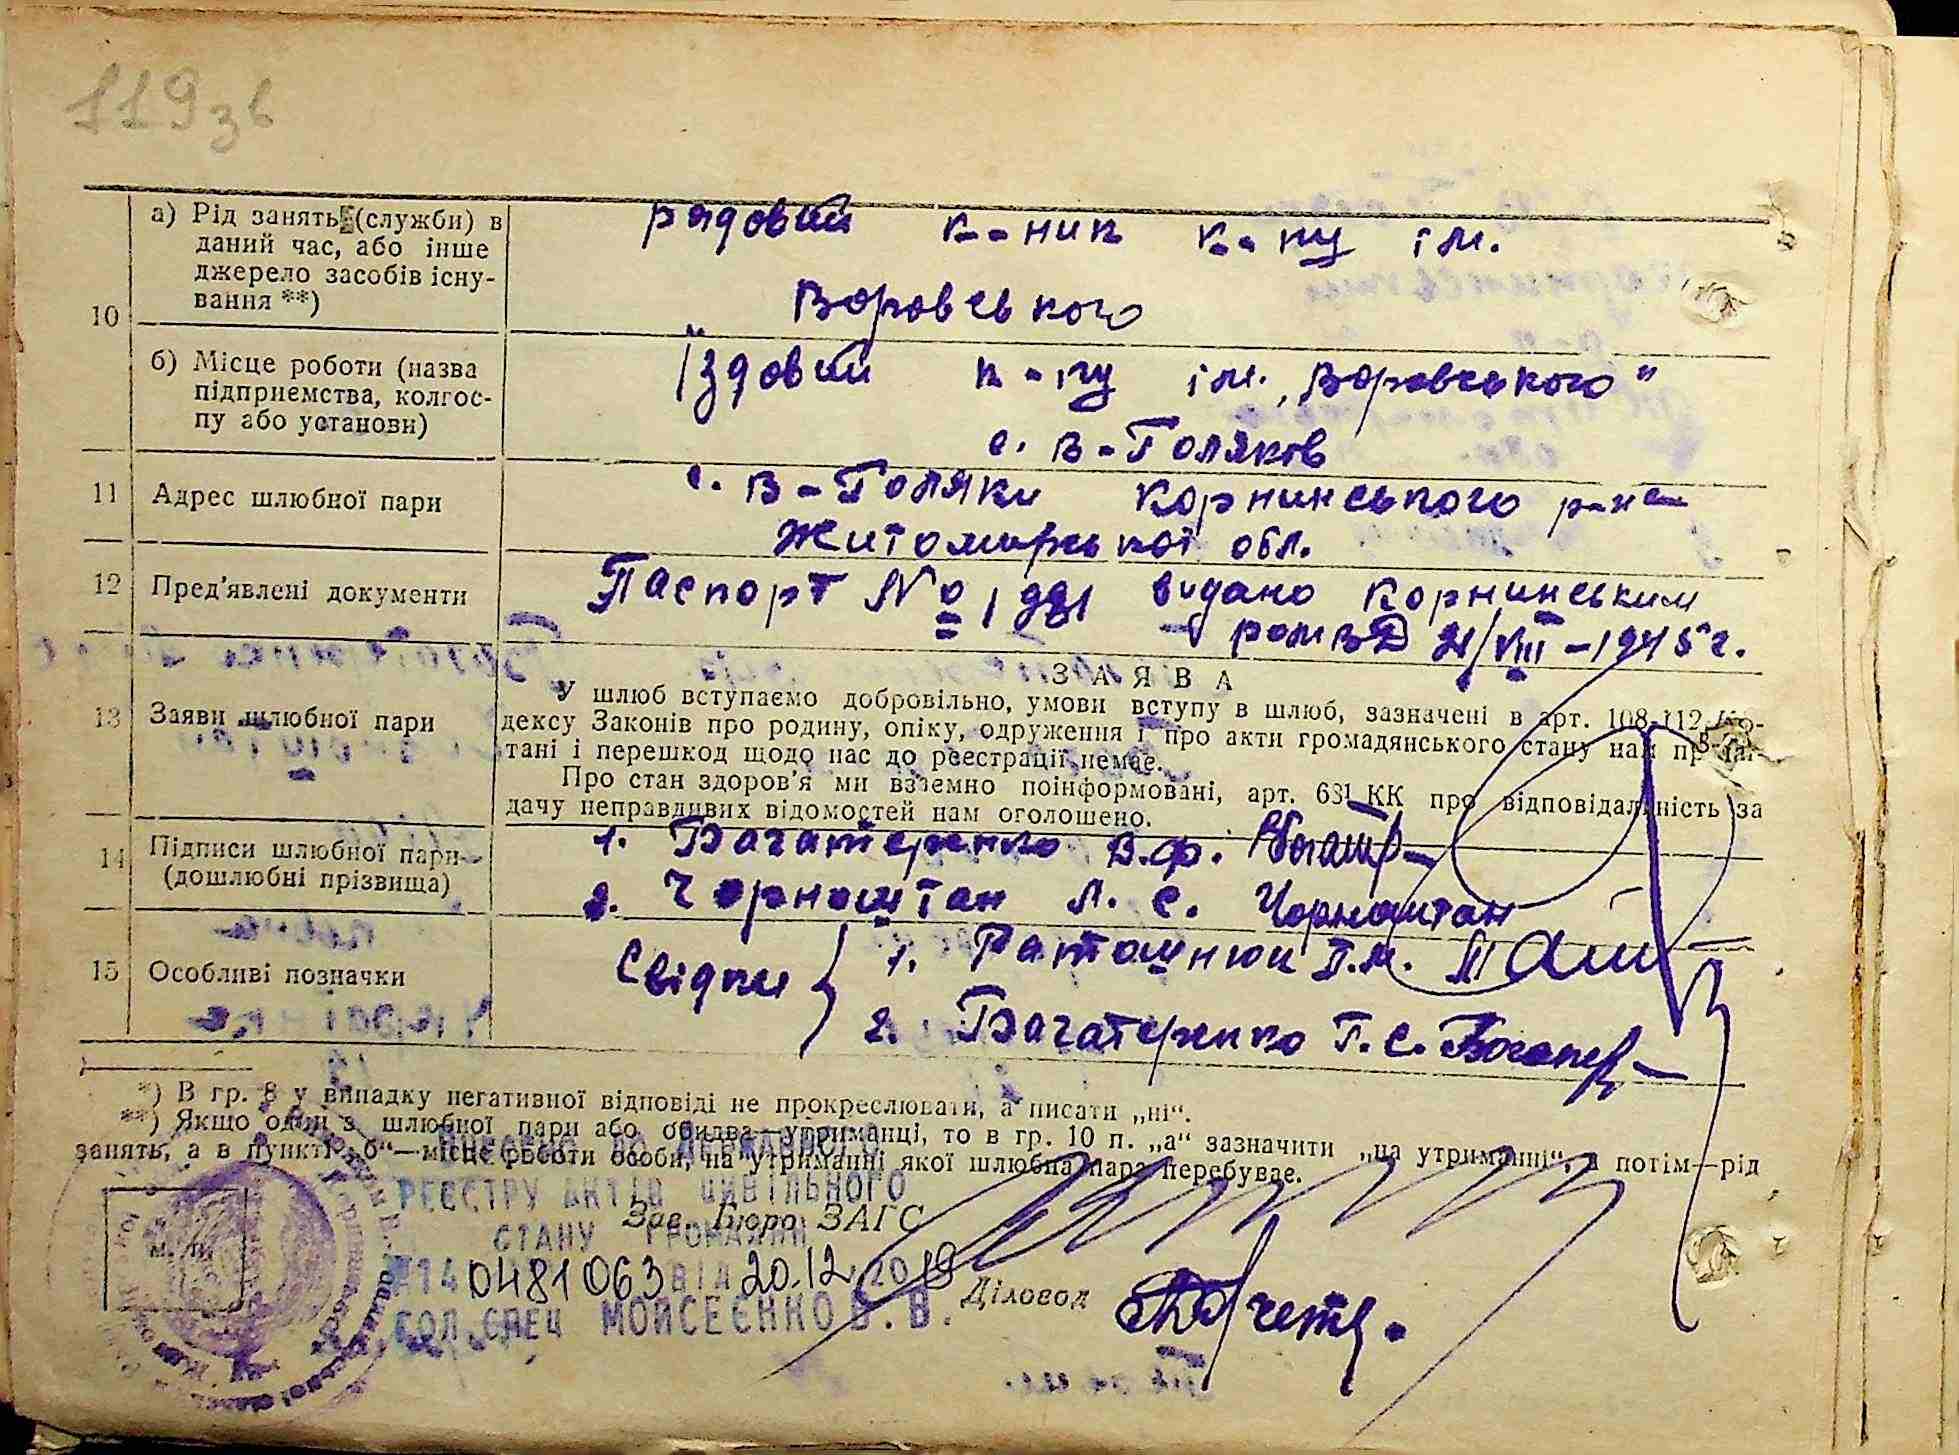 119 зв
а) Рід занять (служби) в
даний час, або інше
джерело засобів існу-
вання **)
рядовий к-ник к-пу ім.
Воровського
10
б) Місце роботи (назва
підприємства, колгос-
пу або установи)
їздовий к-пу ім. „Воровського"
с. В-Голяків
11 Адрес шлюбної пари
с. В-Голяки Корнинського р-не
Житомирської обл.
12 Пред'явлені документи
Паспорт № видано Корнинським
VIII-1945 г.
13 Заяви шлюбної пари
ЗАЯВА
У шлюб вступаємо добровільно, умови вступу в шлюб, зазначені в арт. 108-112 Ко-
дексу Законів про родину, опіку, одруження і про акти громадянського стану нам прочи-
тані і перешкод щодо нас до реєстрації немає.
Про стан здоров'я ми взаємно поінформовані, арт. 631 КК про відповідальність за
дачу неправдивих відомостей нам оголошено.
14 Підписи шлюбної пари
(дошлюбні прізвища)
1. Багатеренко В.Ф.
2. Чорноштан Л. С. Чорноштан
15 Особливі позначки
Свідки
1. Ратошнюк П.М.
2. Багатеренко Г.С.
*) В гр. 8 у випадку негативної відповіді не прокреслювати, а писати „ні".
**) Якщо один з шлюбної пари або обидва—утриманці, то в гр. 10 п. „а" зазначити „на утриманні", а потім—рід
занять, а в пункті „б"—місце роботи особи, на утриманні якої шлюбна пара перебуває.
ВНЕСЕНО ДО ДЕРЖАВНОГО
РЕЄСТРУ АКТІВ ЦИВІЛЬНОГО
СТАНУ ГРОМАДЯН
Зав. Бюро ЗАГС
0481063 ВІД 20.12.2019
ГОЛ.СПЕЦ МОЙСЕЄНКО В.В.
Діловод
М. П.